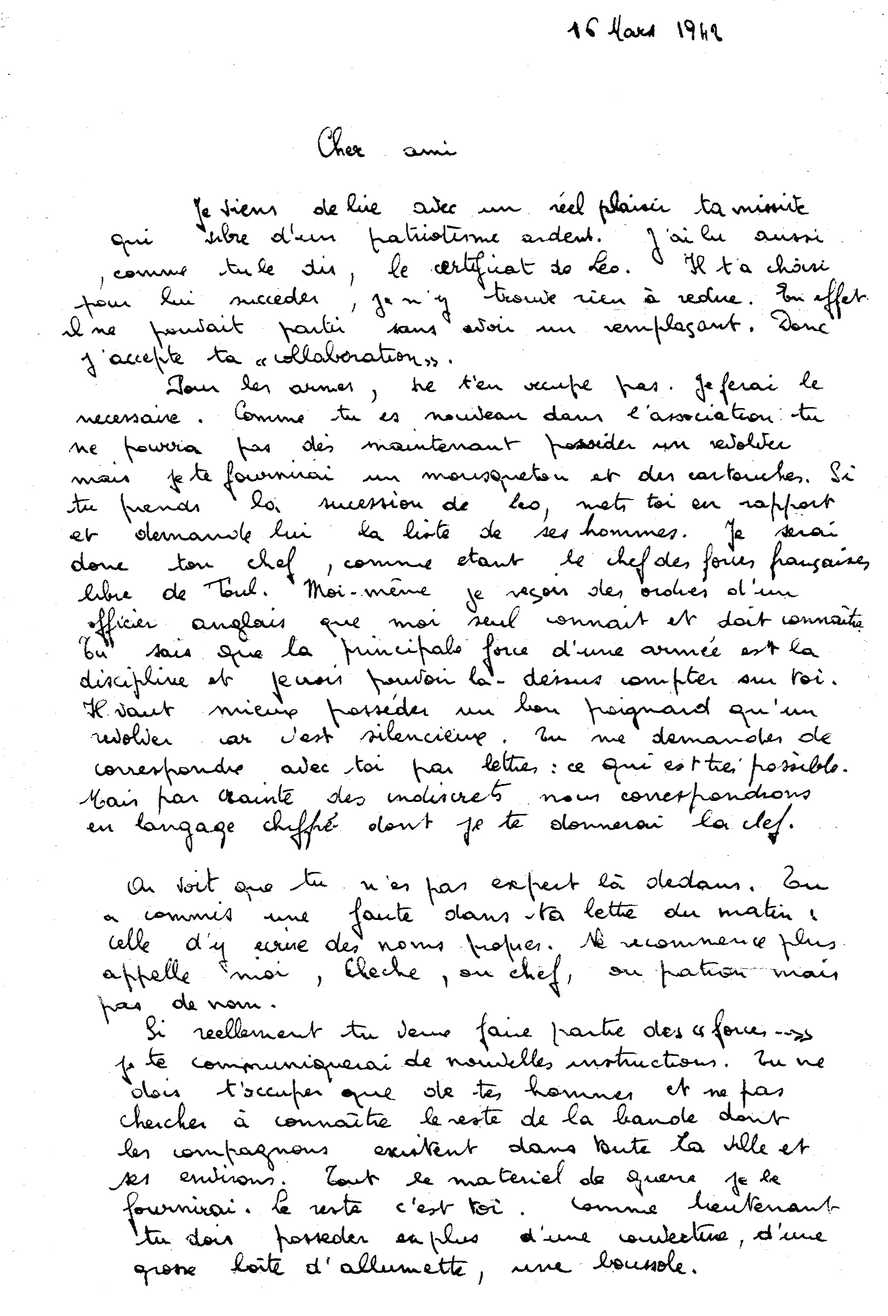 16 Mars 1942
Cher ami
Je viens de lire avec un réel plaisir ta missive
qui vibre d'un patriotisme ardent. J'ai lu aussi
, comme tu le dis, le certificat de Leo. Il t'a choisi
pour lui succeder, je n'y trouve rien à redire. En effet
il ne pouvait partir sans avoir un remplaçant. Donc
j'accepte ta "collaboration".
Pour les armes, ne t'en occupe pas. Je ferai le
necessaire. Comme tu es nouveau dans l'association tu
ne pourra pas dès maintenant posséder un revolver
mais je te fournirai un mousqueton et des cartouches. Si
tu prends la sucession de Leo, mets toi en rapport
et demande lui la liste de ses hommes. Je serai
donc ton chef, comme etant le chef des forces françaises
libre de Toul. Moi-même je reçois des ordres d'un
officier anglais que moi seul connait et doit connaître
Tu sais que la principale force d'une armée est la
discipline et je crois pouvoir là-dessus compter sur toi.
Il vaut mieux posséder un bon poignard qu'un
revolver car c'est silencieux. Tu me demandes de
correspondre avec toi par lettres : ce qui est très possible.
Mais par crainte des indiscrets nous correspondrons
en langage chiffré dont je te donnerai la clef.
On voit que tu n'es pas expert là dedans. Tu
a commis une faute dans ta lettre du matin :
celle d'y ecrire des noms propres. Ne recommence plus
appelle moi, Cleche, ou chef, ou patron mais
pas de nom.
Si reellement tu veux faire partie des "forces ..."
je te communiquerai de nouvelles instructions. Tu ne
dois t'occuper que de tes hommes et ne pas
chercher à connaître le reste de la bande dont
les compagnons existent dans toute la ville et
ses environs. Tout le materiel de guerre je le
fournirai. Le reste c'est toi. Comme lieutenant
tu dois posseder en plus d'une couverture, d'une
grosse boîte d'allumette, une boussole.